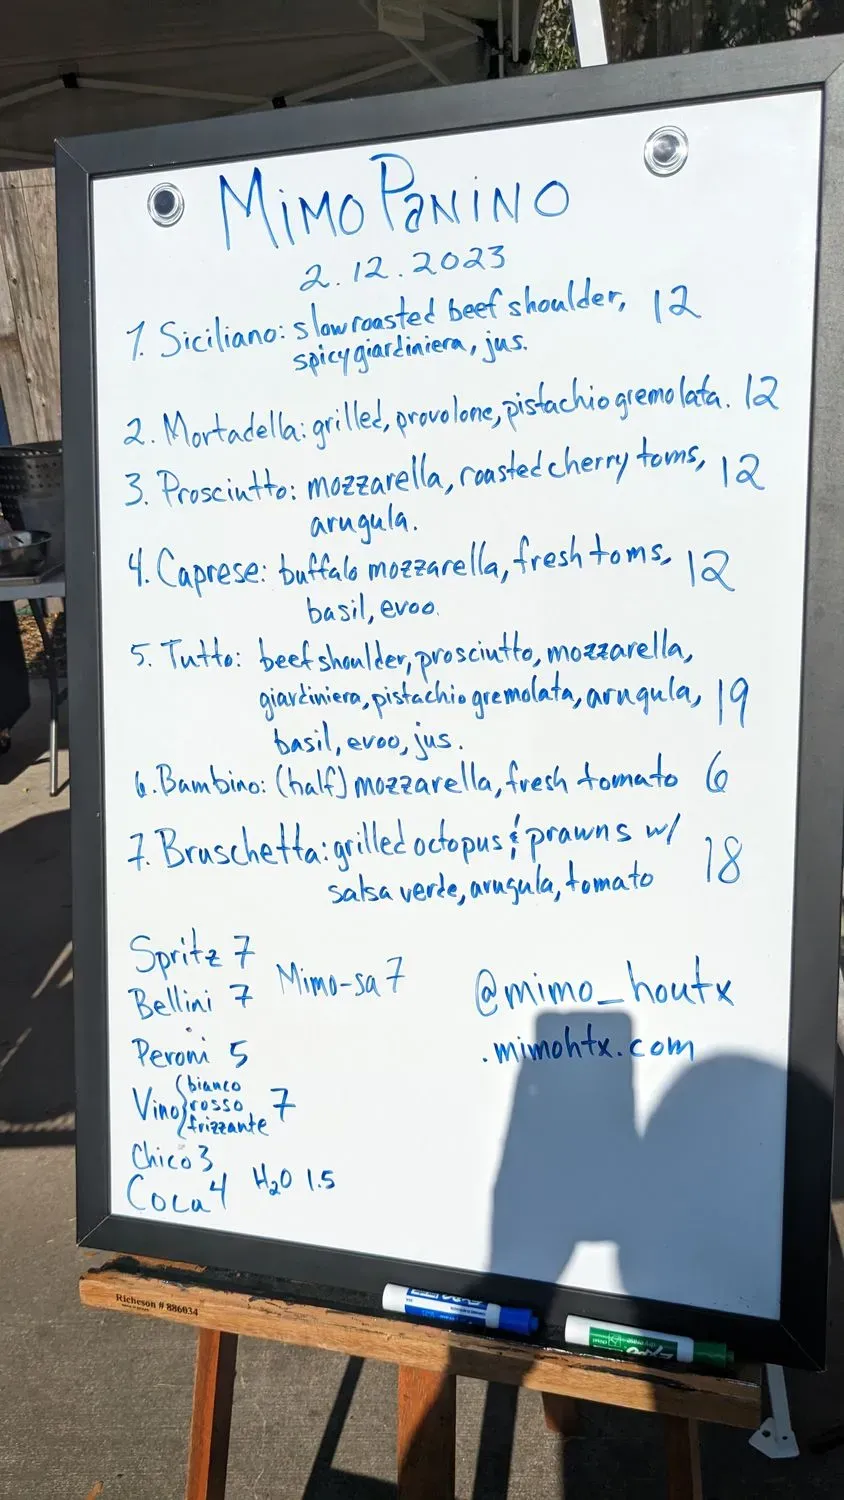 Mimo Panino
2.12.2023
1. Siciliano: slow roasted beef shoulder, 12
spicy giardiniera, jus.
2. Mortadella: grilled, provolone, pistachio gremolata. 12
3. Prosciutto: mozzarella, roasted cherry toms, 12
arugula.
4. Caprese: buffalo mozzarella, fresh toms, 12
basil, evoo.
5. Tutto: beef shoulder, prosciutto, mozzarella,
giardiniera, pistachio gremolata, arugula, 19
basil, evoo, jus.
6. Bambino: (half) mozzarella, fresh tomato 6
7. Bruschetta: grilled octopus & prawns w/ 18
salsa verde, arugula, tomato
Spritz 7
Mimo-sa 7
Bellini 7
Peroni 5
Vino { bianco
rosso 7
frizzante
Chico 3
Coca 4
H₂O 1.5
@mimo_houtx
.mimohtx.com
Richeson # 886034
EXPO